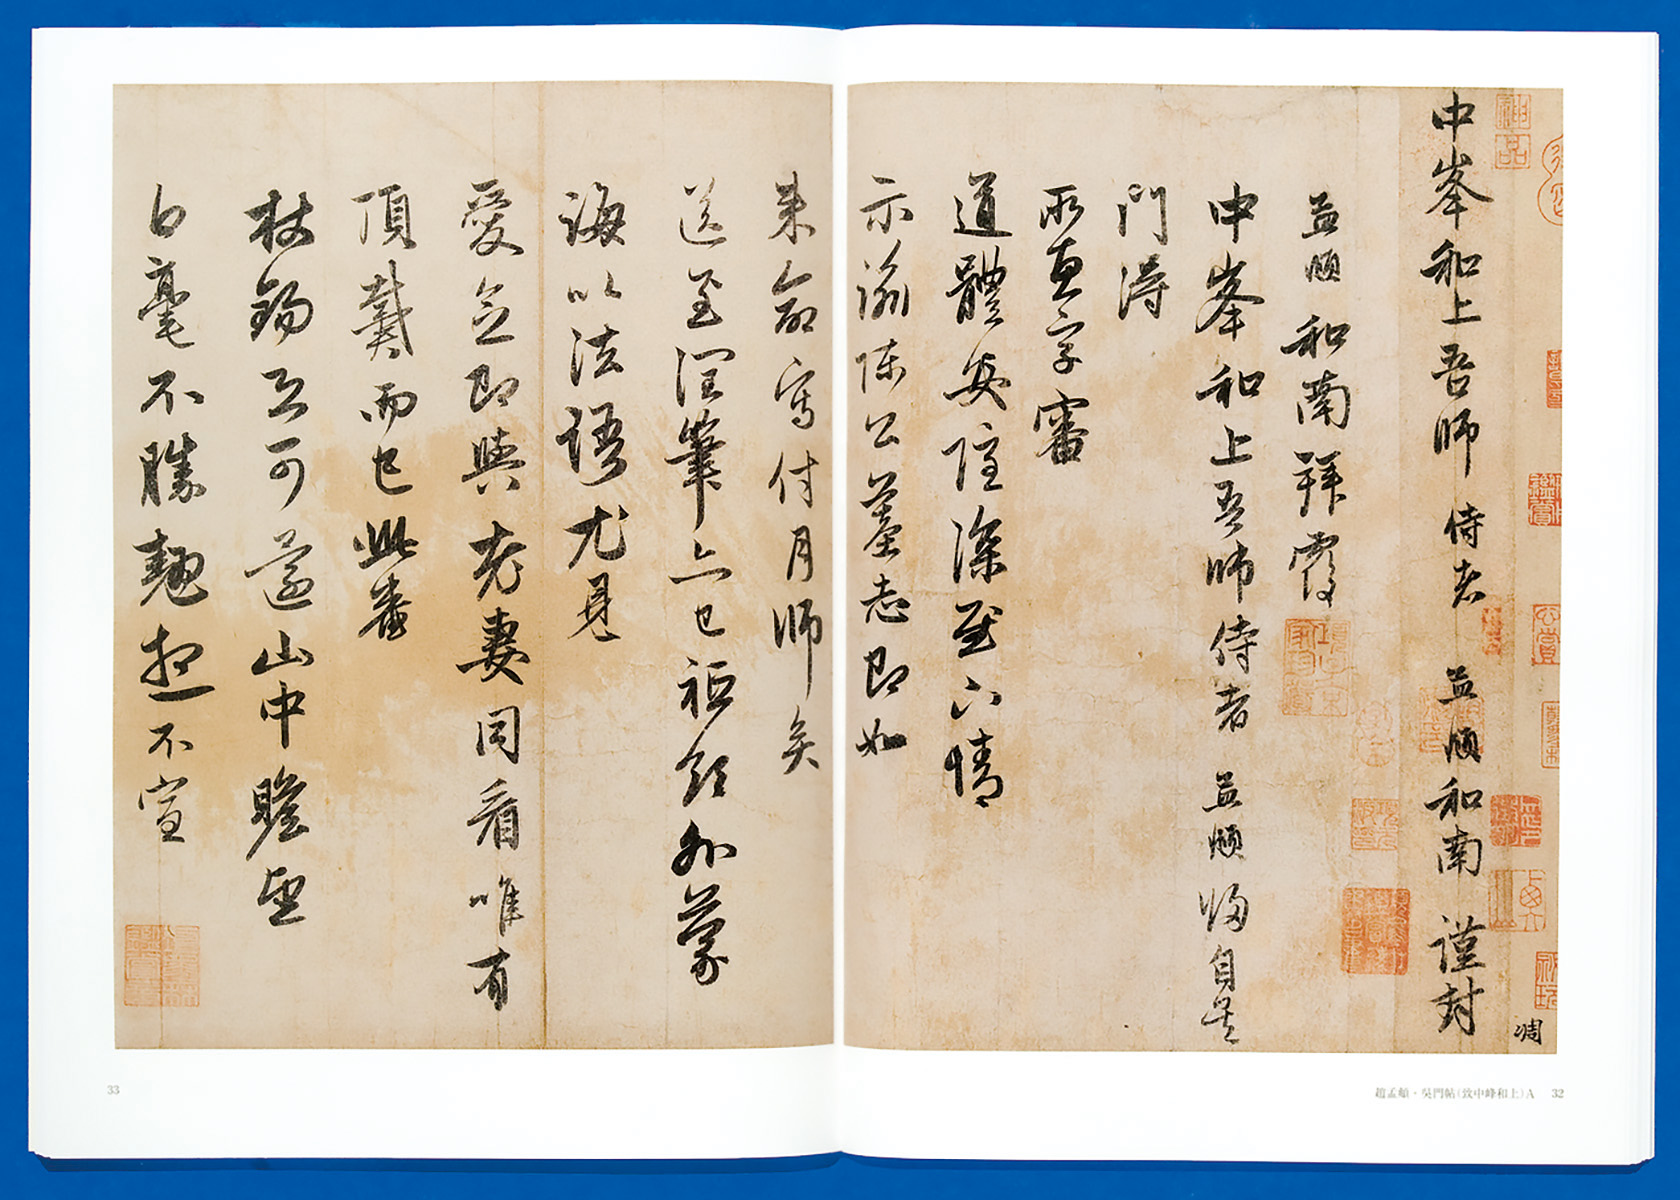 中峯和上吾師 侍者 孟頫和南 謹封
孟頫和南拜覆
中峯和上吾師侍者 孟頫歸自吳
門得
所惠字審
道體安隱深慰下情
示諭陳公墓志即如
来命寫付月師矣
送至潤筆亦已祗領外蒙
誨以法語尤見
愛念即與老妻同看唯有
頂戴而已此番
杖錫又可還山中瞻望
白毫不勝翹想不宣
趙孟頫・吳門帖(致中峰和上)A 32
33